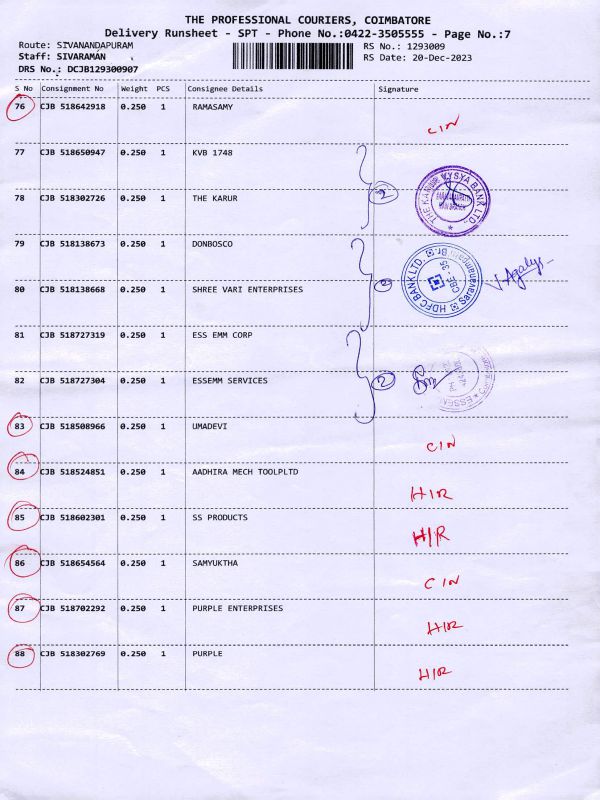 THE PROFESSIONAL COURIERS, COIMBATORE
Delivery Runsheet - SPT - Phone No.:0422-3505555 - Page No.:7
Route: SIVANANDAPURAM RS No.: 1293009
Staff: SIVARAMAN RS Date: 20-Dec-2023
DRS No.: DCJB129300907
S No Consignment No Weight PCS Consignee Details Signature
76 CJB 518642918 0.250 1 RAMASAMY
CIN
77 CJB 518650947 0.250 1 KVB 1748
78 CJB 518302726 0.250 1 THE KARUR
2
THE KARUR VYSYA BANK LTD.
79 CJB 518138673 0.250 1 DONBOSCO
80 CJB 518138668 0.250 1 SHREE VARI ENTERPRISES
2
HDFC BANK LTD. Saravanampatti Br.
CBE - 35
81 CJB 518727319 0.250 1 ESS EMM CORP
82 CJB 518727304 0.250 1 ESSEMM SERVICES
2
83 CJB 518508966 0.250 1 UMADEVI
CIN
84 CJB 518524851 0.250 1 AADHIRA MECH TOOLPLTD
H/R
85 CJB 518602301 0.250 1 SS PRODUCTS
H/R
86 CJB 518654564 0.250 1 SAMYUKTHA
CIN
87 CJB 518702292 0.250 1 PURPLE ENTERPRISES
H/R
88 CJB 518302769 0.250 1 PURPLE
H/R